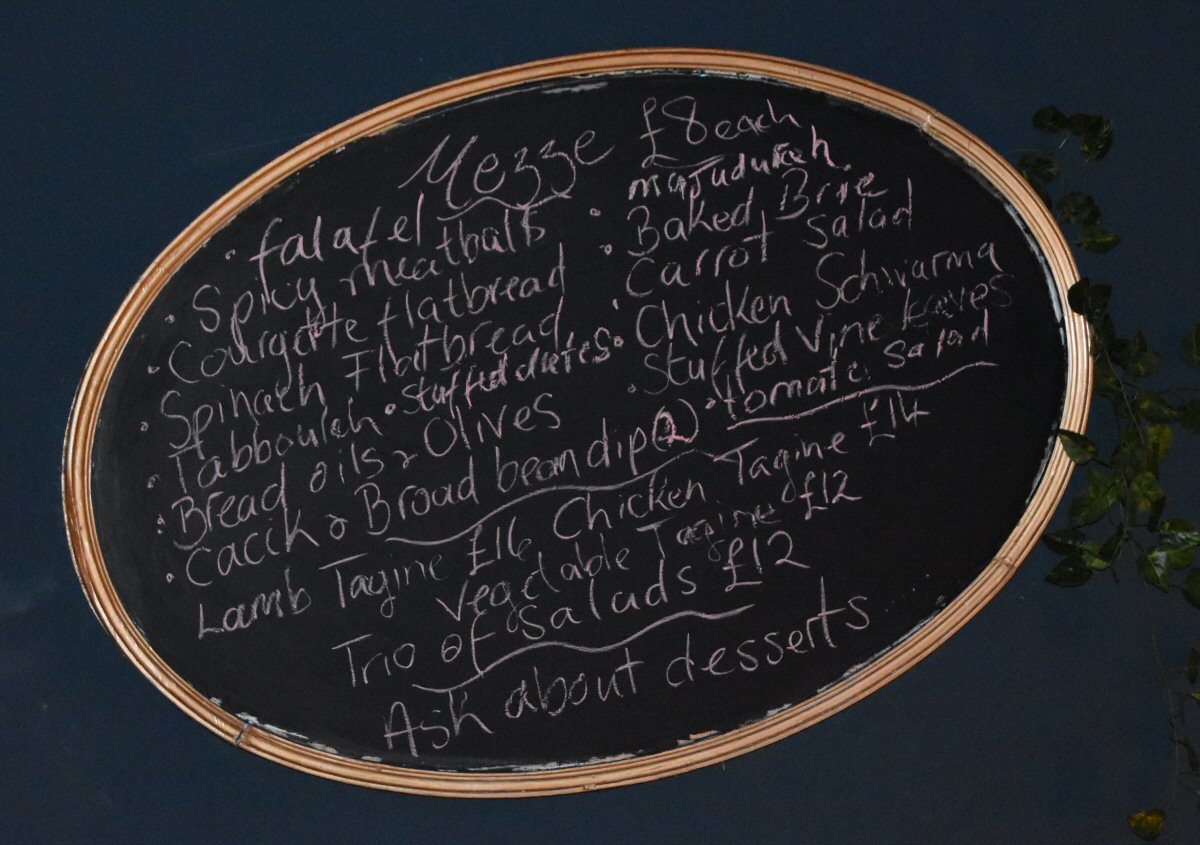 Mezze £8 each
• falafel
• Spicy meatballs
• Courgette flatbread
• Spinach Flatbread
• Tabbouleh • Stuffed dates
• Bread oils & Olives
• Cacik & Broad bean dip (2)
majudurah.
• Baked Brie
• Carrot Salad
• Chicken Schwarma
• Stuffed Vine leaves
• tomato salad
Lamb Tagine £16 Chicken Tagine £14
Vegetable Tagine £12
Trio of Salads £12
Ask about desserts